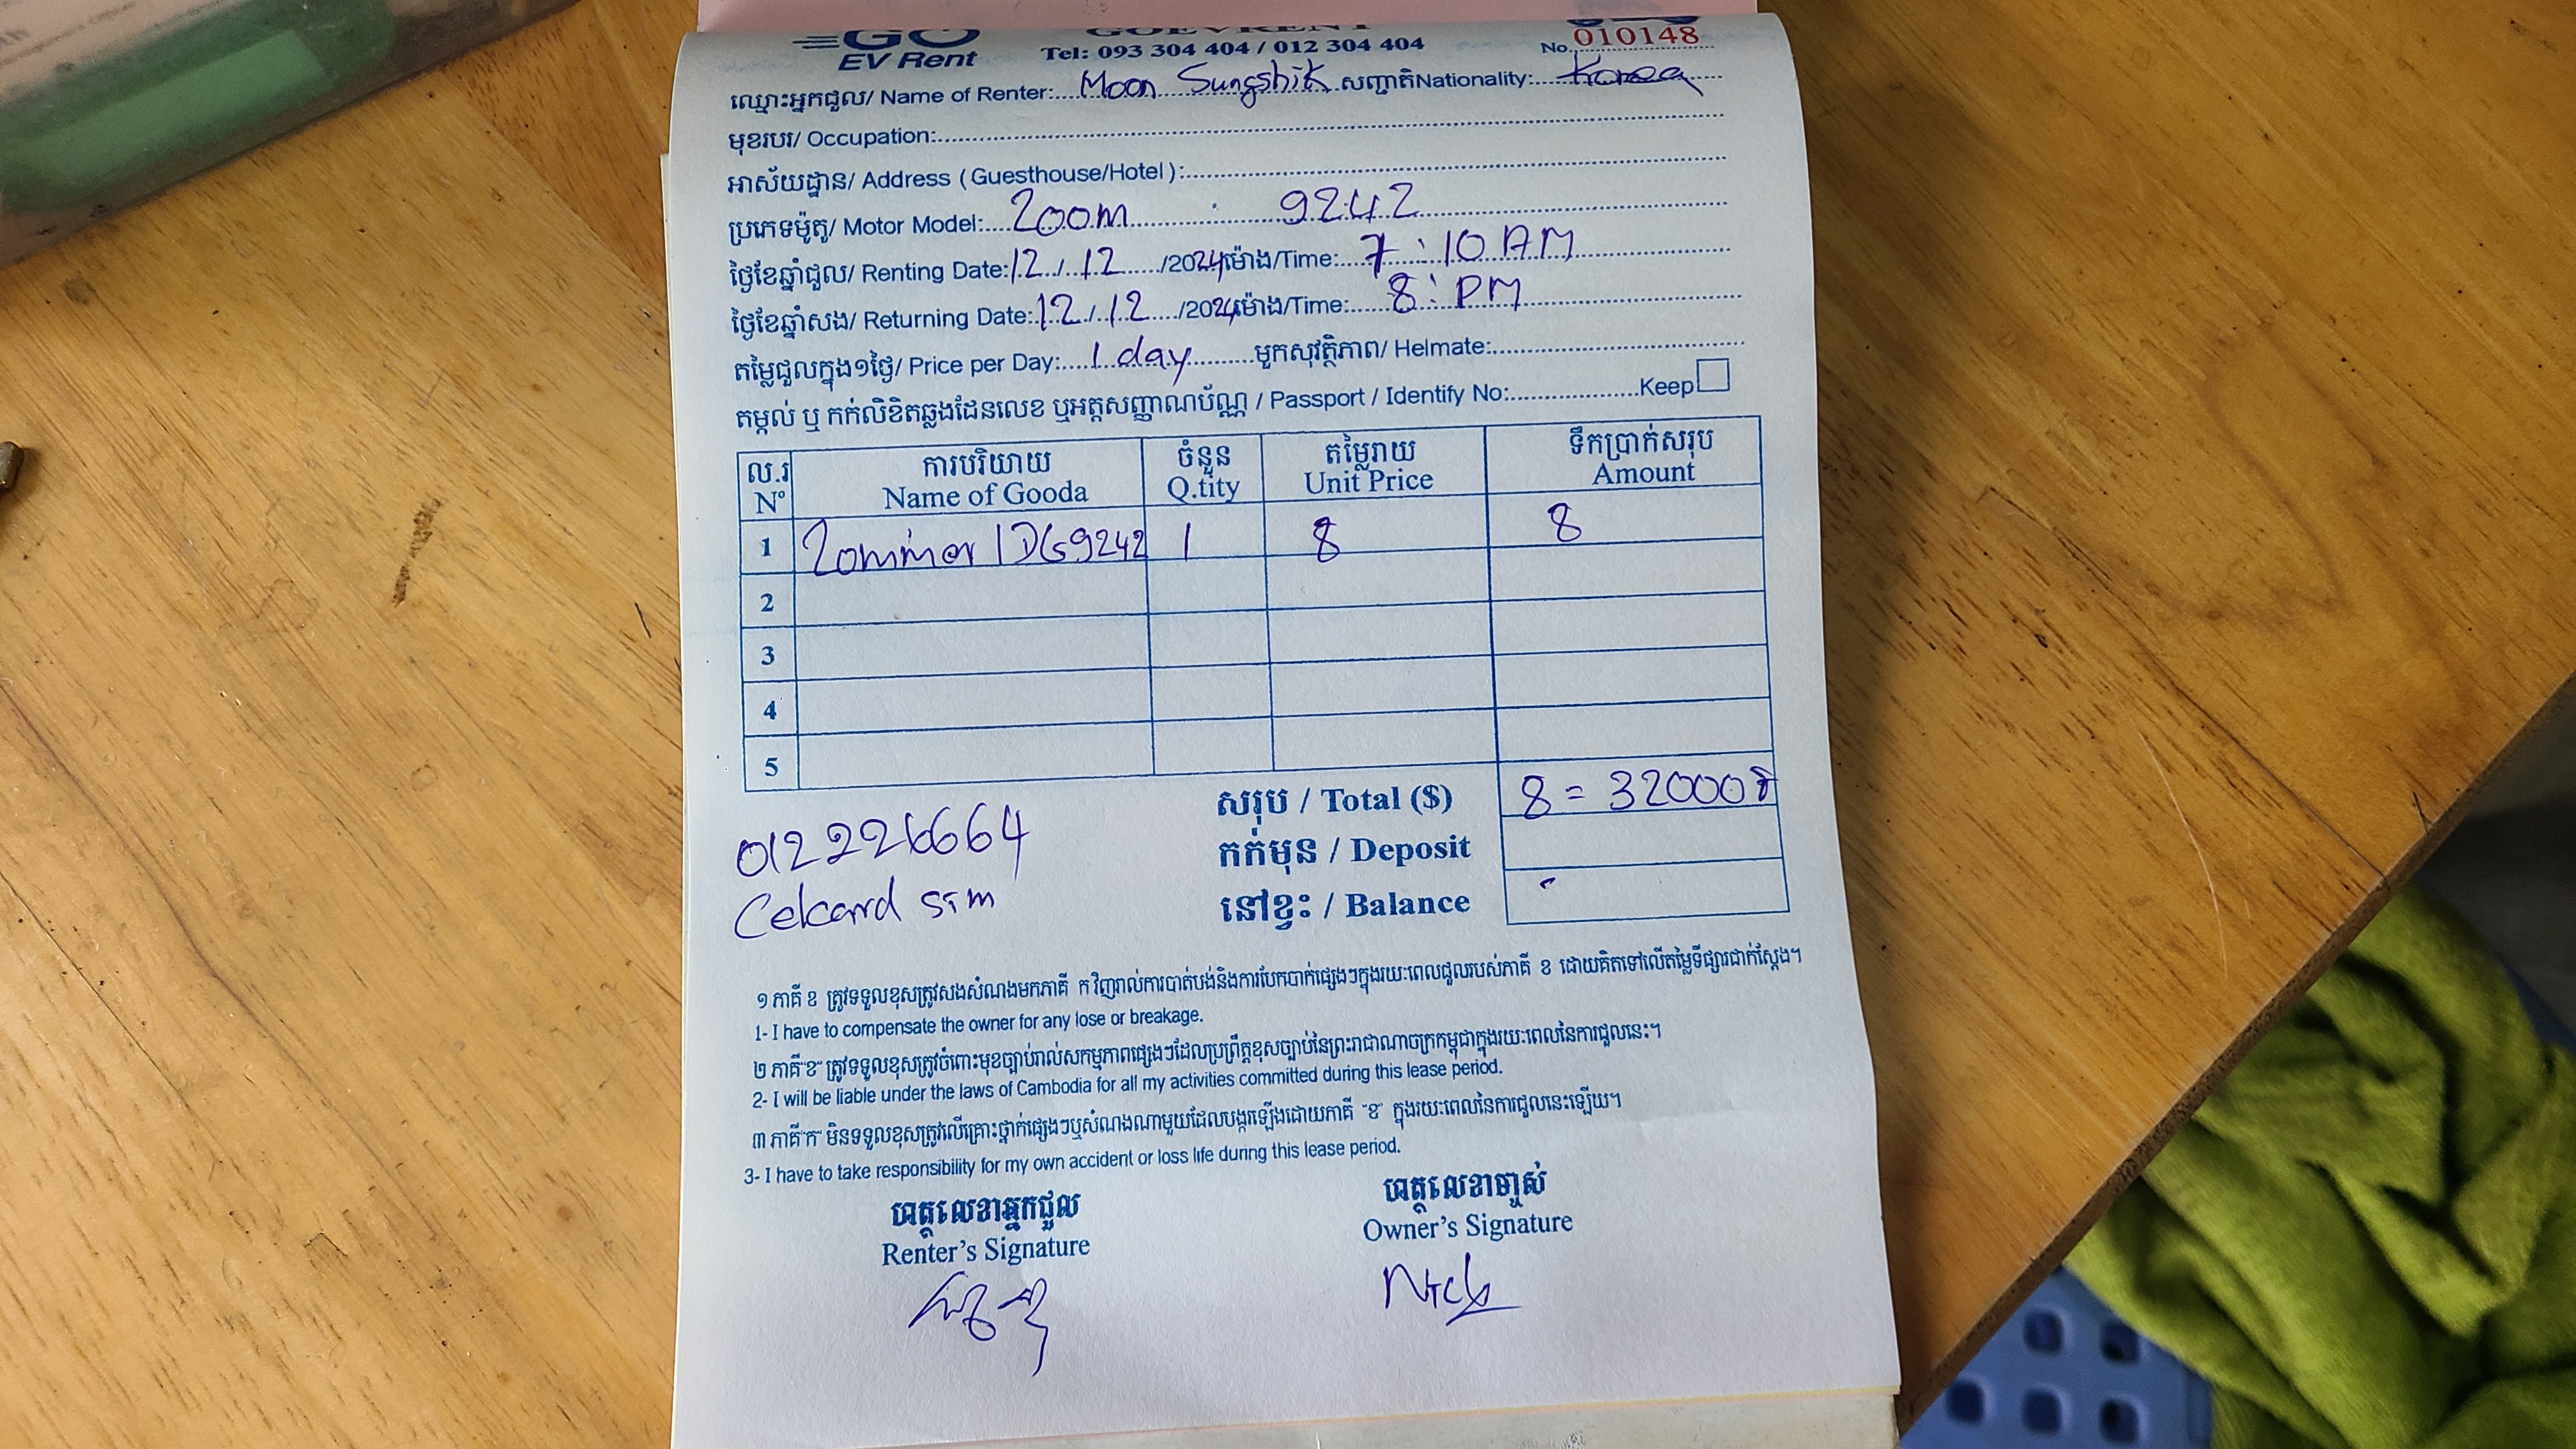 GO GOEVRENT
EV Rent Tel: 093 304 404 / 012 304 404 No. 010148
ឈ្មោះអ្នកជួល/ Name of Renter: Moon Sungshik សញ្ជាតិNationality: Korea
មុខរបរ/ Occupation:
អាស័យដ្ឋាន/ Address (Guesthouse/Hotel):
ប្រភេទម៉ូតូ/ Motor Model: Zoom 9242
ថ្ងៃខែឆ្នាំជួល/ Renting Date: 12/12/2024 ម៉ោង/Time: 7:10 AM
ថ្ងៃខែឆ្នាំសង/ Returning Date: 12/12/2024 ម៉ោង/Time: 8: PM
តម្លៃជួលក្នុង១ថ្ងៃ/ Price per Day: 1 day មួកសុវត្ថិភាព/ Helmate:
តម្កល់ ឬ កក់លិខិតឆ្លងដែនលេខ ឬអត្តសញ្ញាណប័ណ្ណ / Passport / Identify No: Keep
ល.រ ការបរិយាយ ចំនួន តម្លៃរាយ ទឹកប្រាក់សរុប
N° Name of Gooda Q.tity Unit Price Amount
1 Zommer 1DG9242 1 8 8
2
3
4
5
សរុប / Total ($) 8 = 32000៛
012226664 កក់មុន / Deposit
Celcard sim នៅខ្វះ / Balance
១ ភាគី ខ ត្រូវទទួលខុសត្រូវសងសំណងមកភាគី ក វិញរាល់ការបាត់បង់និងការបែកបាក់ផ្សេងៗក្នុងរយៈពេលជួលរបស់ភាគី ខ ដោយគិតទៅលើតម្លៃទីផ្សារជាក់ស្តែង។
1- I have to compensate the owner for any lose or breakage.
២ ភាគី"ខ" ត្រូវទទួលខុសត្រូវចំពោះមុខច្បាប់រាល់សកម្មភាពផ្សេងៗដែលប្រព្រឹត្តខុសច្បាប់នៃព្រះរាជាណាចក្រកម្ពុជាក្នុងរយៈពេលនៃការជួលនេះ។
2- I will be liable under the laws of Cambodia for all my activities committed during this lease period.
៣ ភាគី"ក" មិនទទួលខុសត្រូវលើគ្រោះថ្នាក់ផ្សេងៗឬសំណងណាមួយដែលបង្កឡើងដោយភាគី "ខ" ក្នុងរយៈពេលនៃការជួលនេះឡើយ។
3- I have to take responsibility for my own accident or loss life during this lease period.
ហត្ថលេខាអ្នកជួល ហត្ថលេខាម្ចាស់
Renter's Signature Owner's Signature